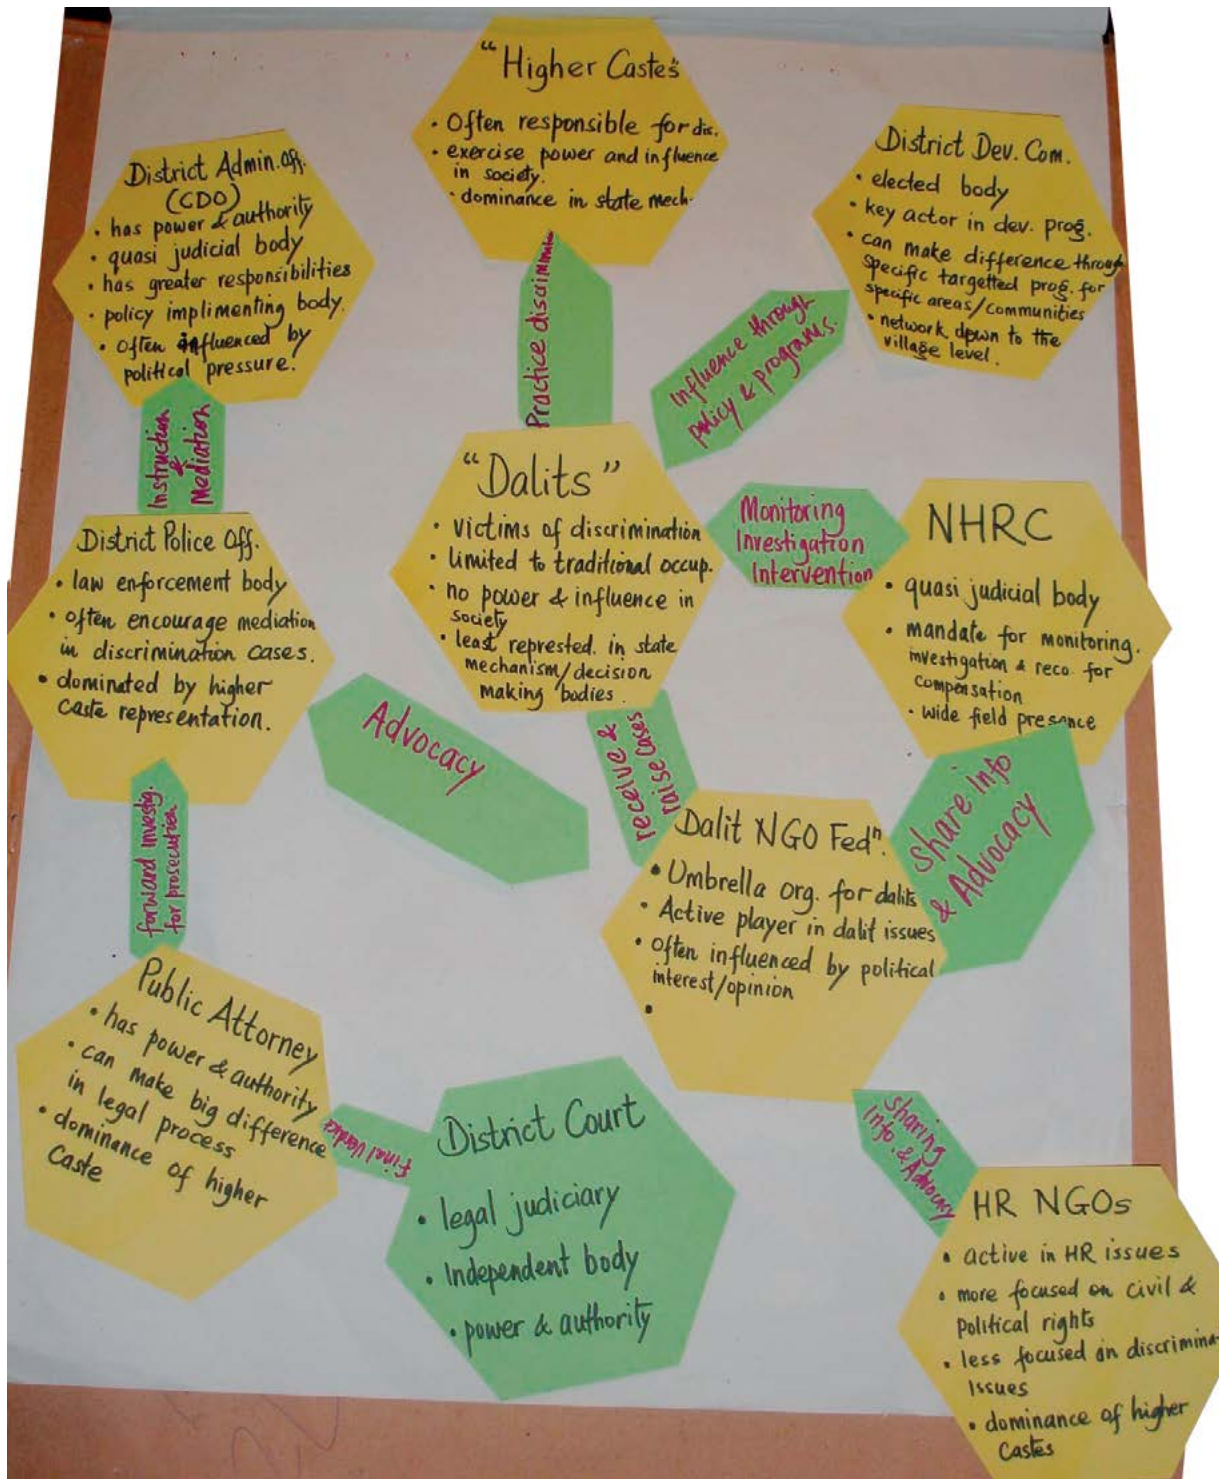 "Higher Castes"
• Often responsible for dis.
• exercise power and influence
in society.
• dominance in state mech.
District Admin. Off.
(CDO)
• has power & authority
• quasi judicial body
• has greater responsibilities
• policy implimenting body.
• often influenced by
political pressure.
District Dev. Com.
• elected body
• key actor in dev. prog.
• can make difference through
specific targetted prog. for
specific areas/communities
• network down to the
village level.
Practice discrimination
Influence through
policy & programs.
Instruction
&
Mediation
"Dalits"
• victims of discrimination
• limited to traditional occup.
• no power & influence in
society
• least represted. in state
mechanism/decision
making bodies.
Monitoring
Investigation
Intervention
NHRC
• quasi judicial body
• mandate for monitoring.
investigation & reco. for
compensation
• wide field presence
District Police Off.
• law enforcement body
• often encourage mediation
in discrimination cases.
• dominated by higher
caste representation.
Advocacy
receive &
raise cases
Share Info
& Advocacy
forward investig.
for prosecution
Dalit NGO Fedⁿ.
• Umbrella org. for dalits
• Active player in dalit issues
• often influenced by political
interest/opinion
•
Public Attorney
• has power & authority
• can make big difference
in legal process
• dominance of higher
Caste
Final Verdict
District Court
• legal judiciary
• Independent body
• power & authority
Sharing
Info. & Advocacy
HR NGOs
• active in HR issues
• more focused on civil &
Political rights
• less focused on discrimina
Issues
• dominance of higher
Castes